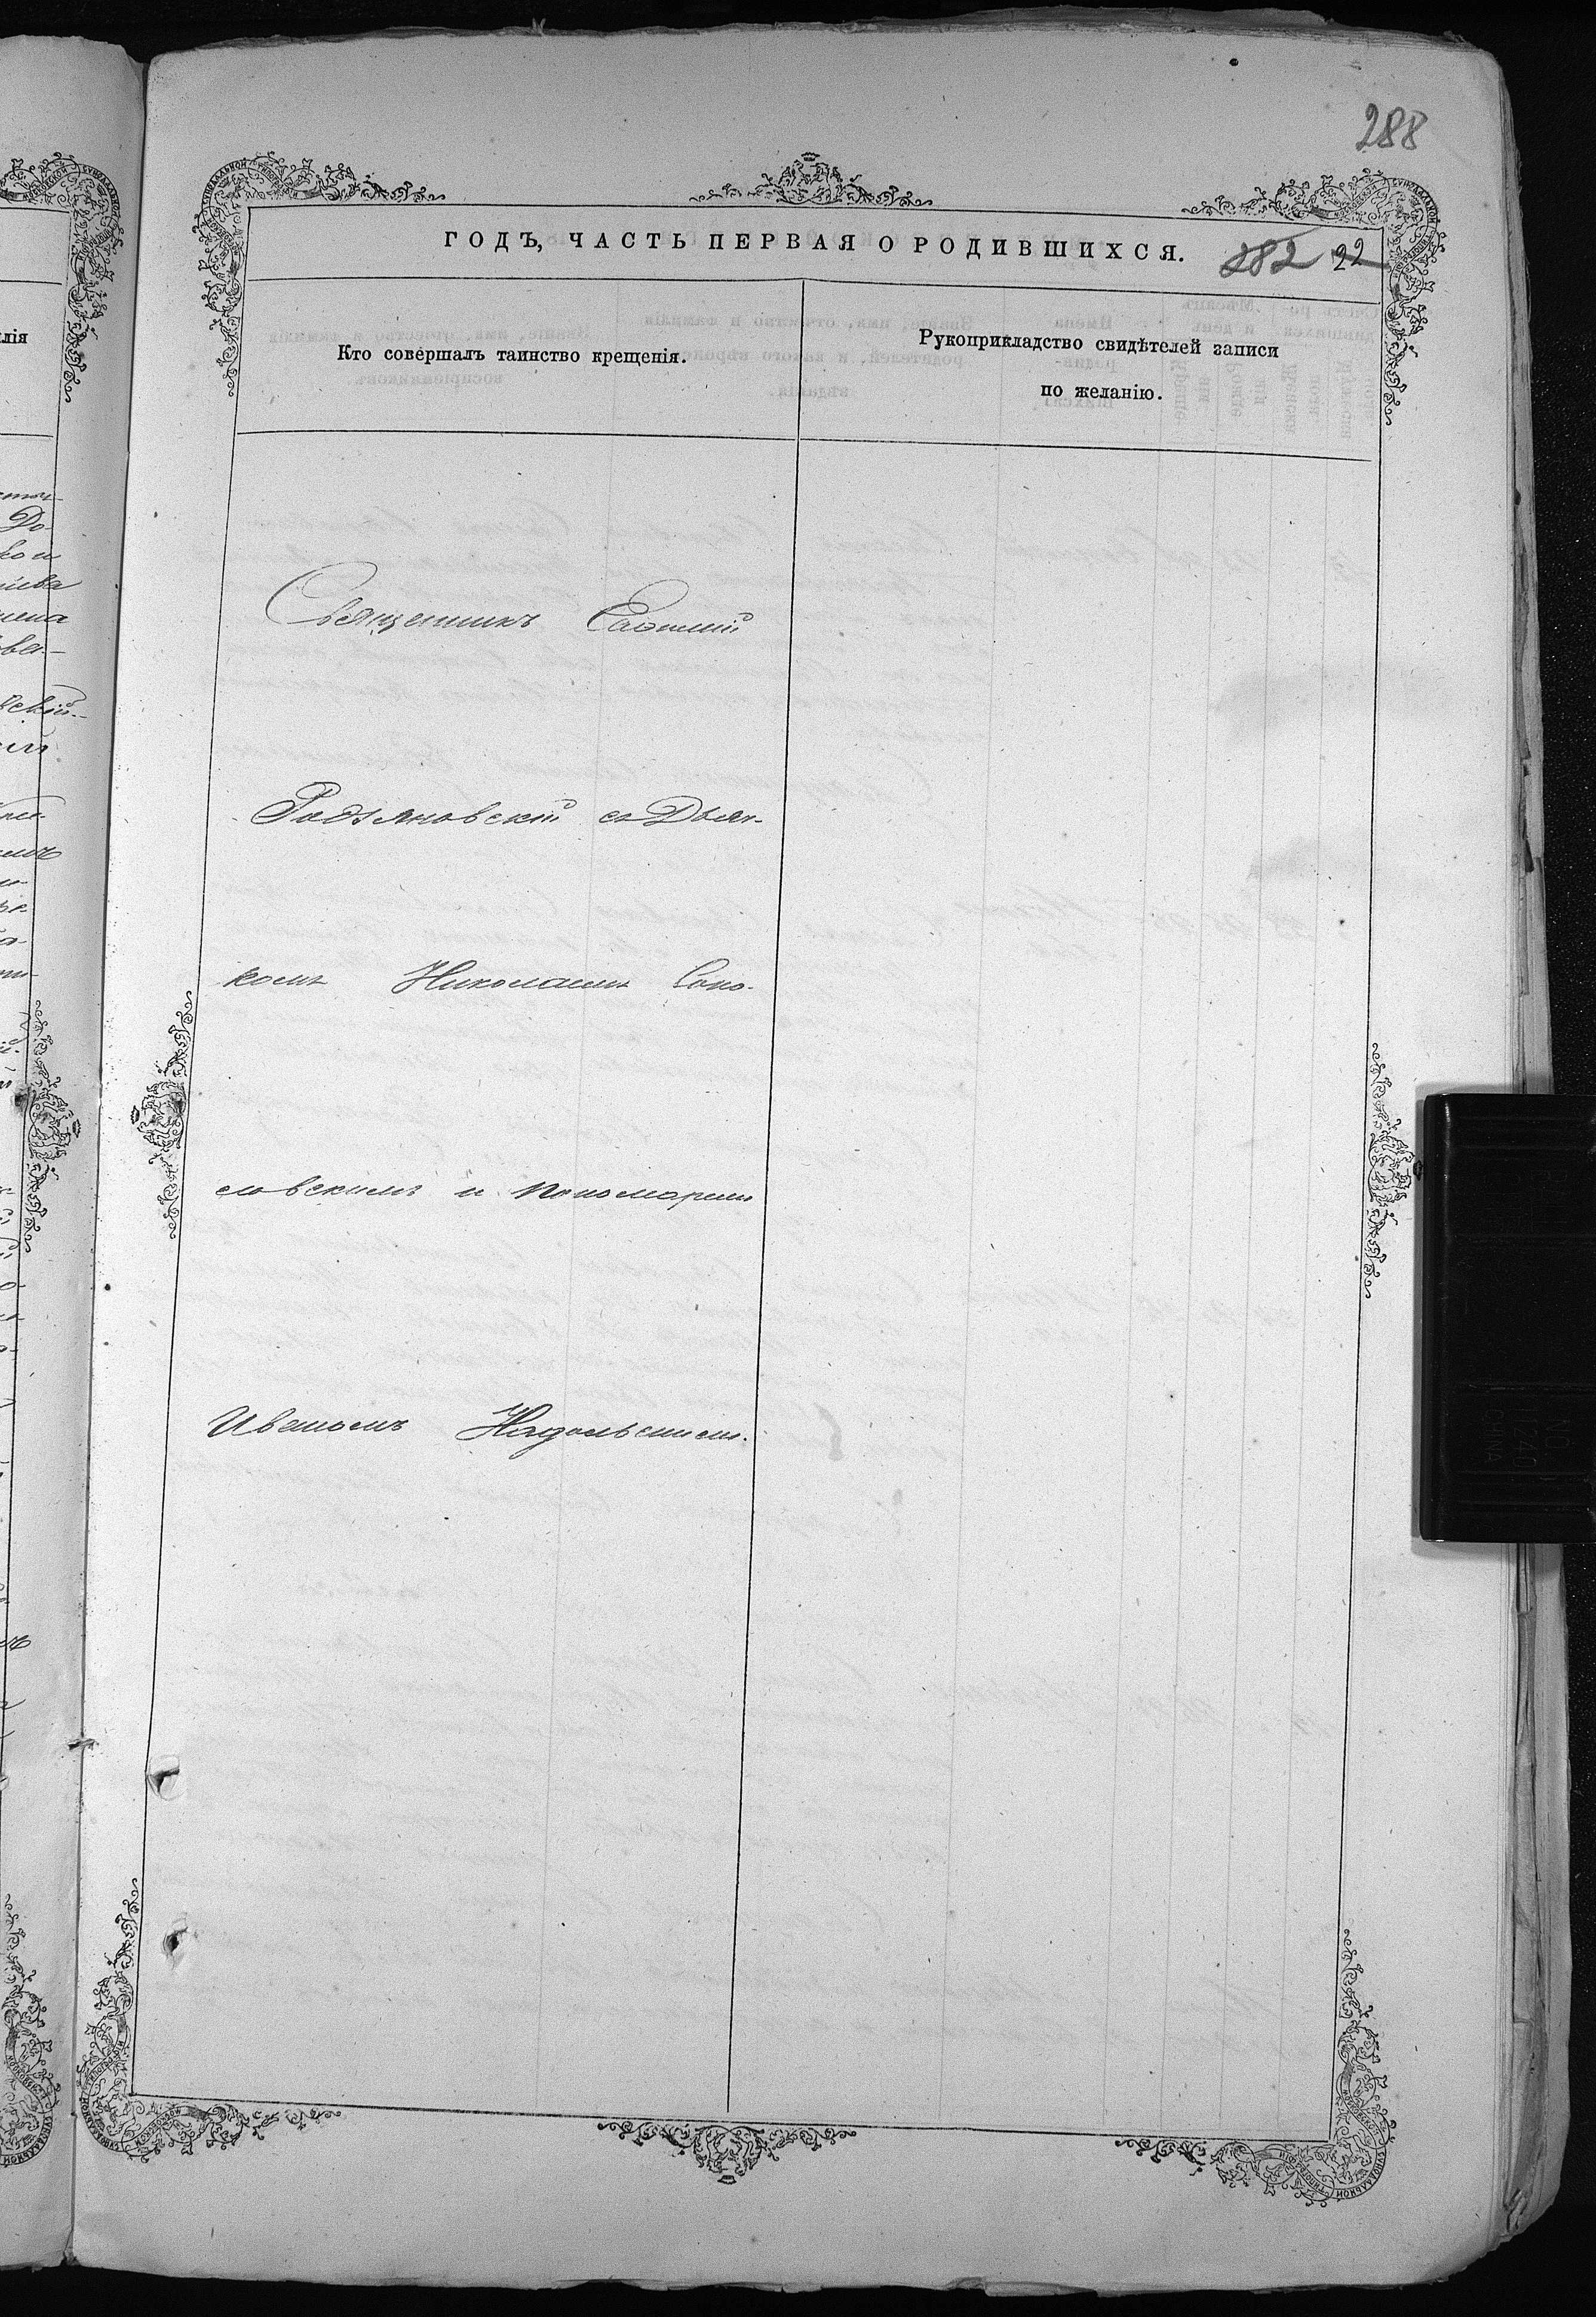 288
ГОДЪ, ЧАСТЬ ПЕРВАЯ О РОДИВШИХСЯ.
282 22
Кто совершалъ таинство крещенія.
Рукоприкладство свидѣтелей записи
по желанію.
Священникъ
Родзяновскій съ Дьяч-
комъ Николаемъ Соко-
ловскимъ и пономаремъ
Иваномъ Надольскимъ.